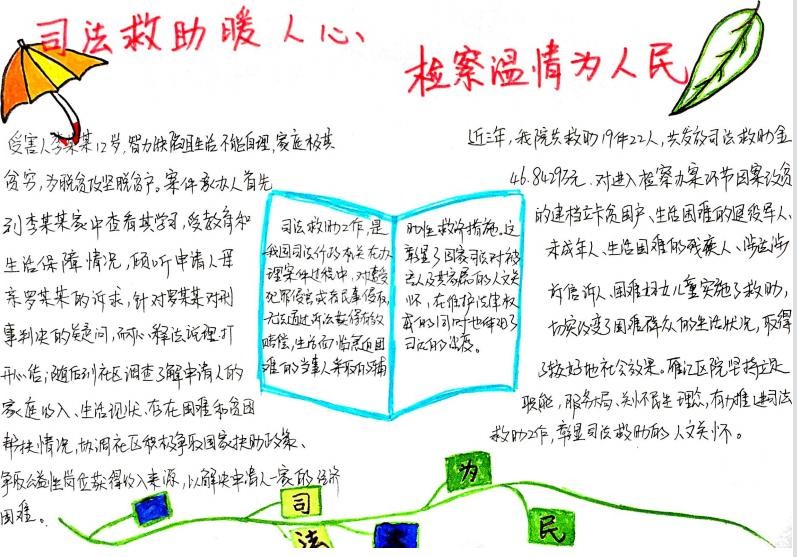 司法救助暖人心、
检察温情为人民
受害人李某某12岁,智力缺陷且生活不能自理,家庭极其
贫穷,为脱贫攻坚脱贫户。案件承办人首先
到李某某家中查看其学习,受教育和
生活保障情况,倾听申请人母
亲罗某某的诉求,针对罗某某对刑
事判决的疑问,耐心释法说理打
开心结;随后到社区调查了解申请人的
家庭收入、生活现状、存在困难和贫困
帮扶情况,协调社区积极争取国家扶助政策、
争取公益性岗位获得收入来源,以解决申请人一家的经济
困难。
司法救助工作,是
我国司法行政机关在办
理案件过程中,对遭受
犯罪侵害或者民事侵权,
无法通过诉讼获得有效
赔偿,生活面临急迫困
难的当事人采取的辅
助性救济措施。这
彰显了国家司法对被
害人及其家属的人文关
怀,在维护法律权
威的同时也体现了
司法的温度。
近三年,我院共救助19件22人,共发放司法救助金
46.8429万元.对进入检察办案环节因案致贫
的建档立卡贫困户、生活困难的退役军人、
未成年人、生活困难的残疾人、涉法涉
诉信访人、困难妇女儿童实施了救助,
切实改变了困难群众的生活状况,取得
了较好地社会效果。雁江区院坚持立足
职能,服务大局、关怀民生理念,有力推进司法
救助工作,彰显司法救助的人文关怀。
司
法
为
民